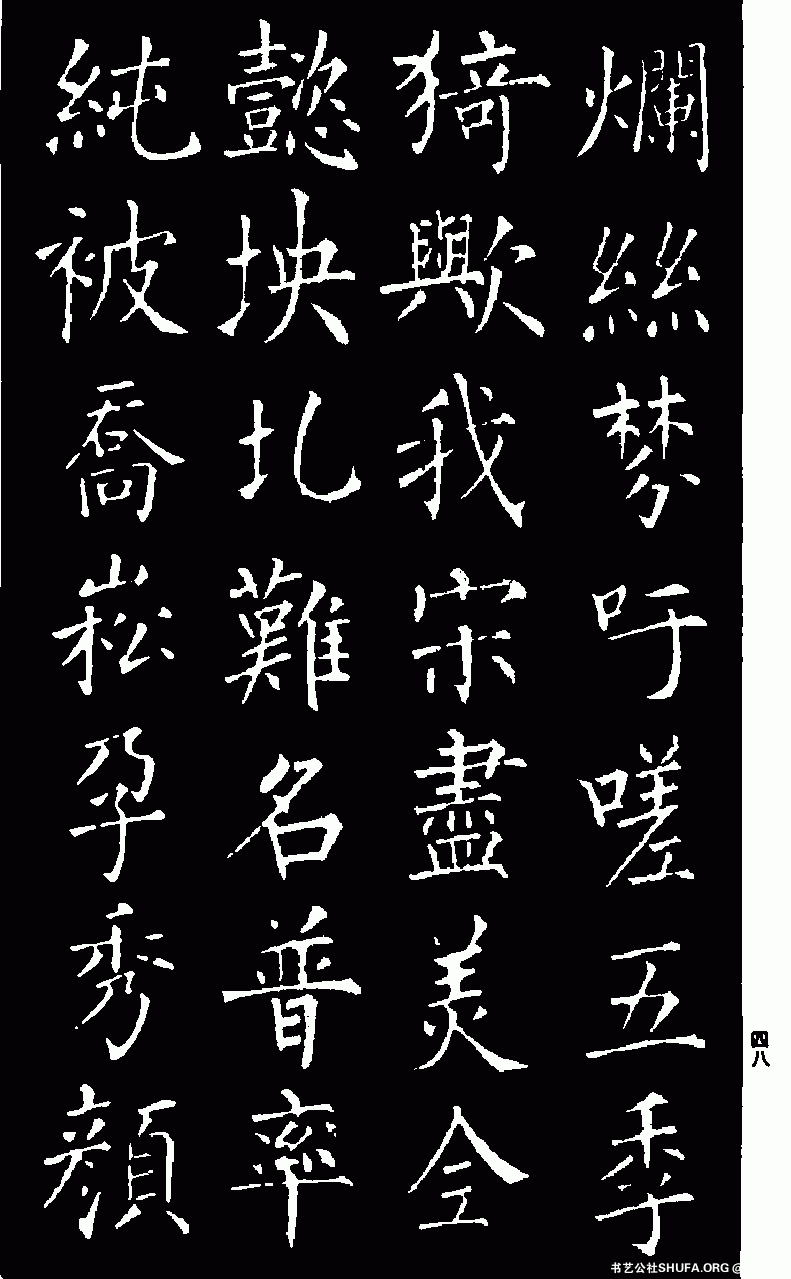 爛絲棼吁嗟五季
猗歟我宋盡美全
懿坱圠難名普率
純被喬崧孕秀顏
四八
书艺公社SHUFA.ORG @